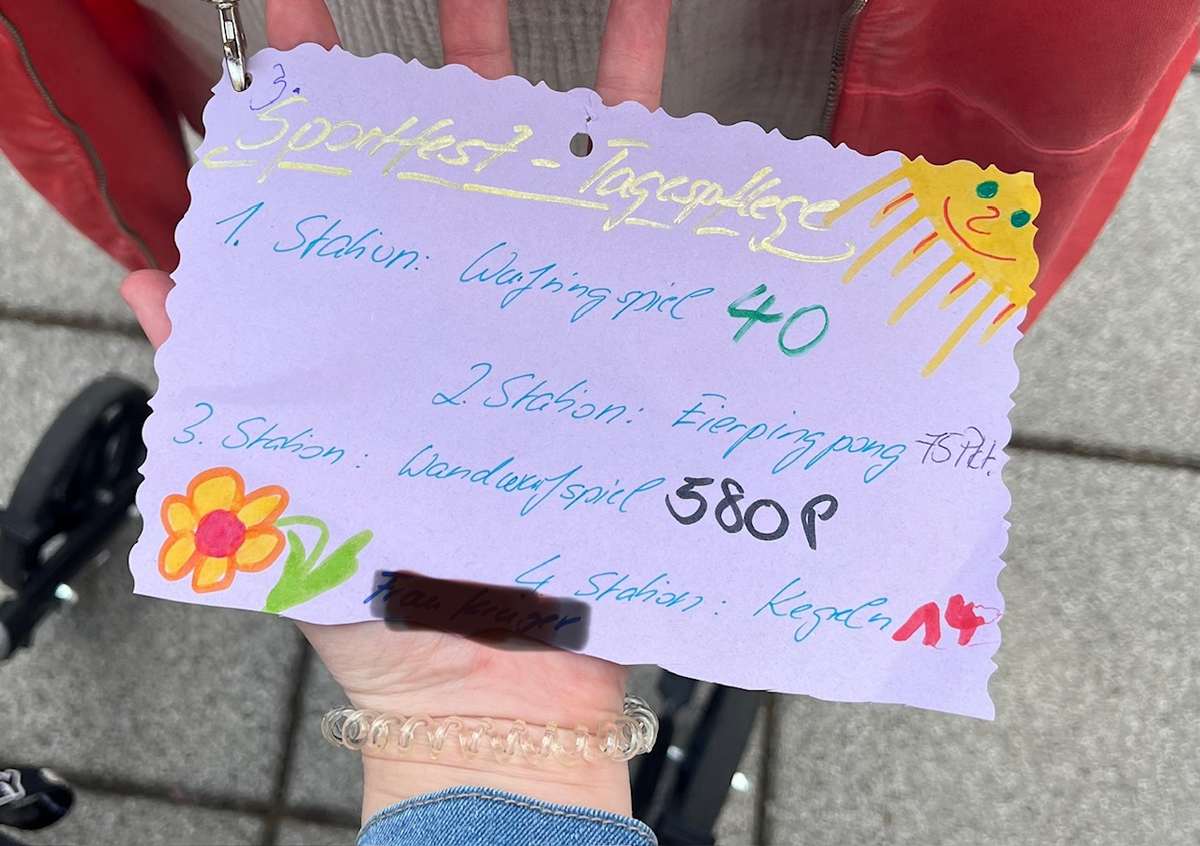 3.
Sportfest - Tagespflege
1. Station: Wurfringspiel 40
2. Station: Eierpingpong 75 Pkt.
3. Station: Wandwurfspiel 580P
4. Station: Kegeln 14